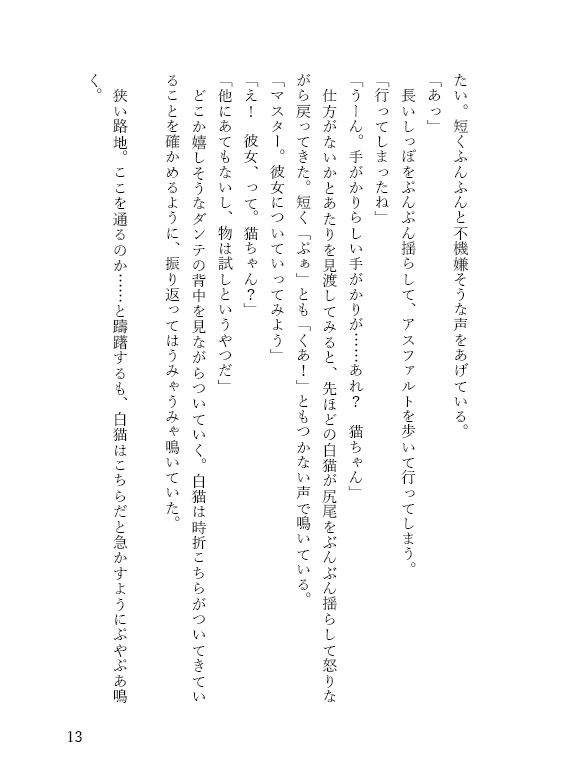 たい。短くふんふんと不機嫌そうな声をあげている。
「あっ」
　長いしっぽをぶんぶん揺らして、アスファルトを歩いて行ってしまう。
「行ってしまったね」
「うーん。手がかりらしい手がかりが……あれ？　猫ちゃん」
　仕方がないかとあたりを見渡してみると、先ほどの白猫が尻尾をぶんぶん揺らして怒りな
がら戻ってきた。短く「ぷぁ」とも「くあ！」ともつかない声で鳴いている。
「マスター。彼女についていってみよう」
「え！　彼女、って。猫ちゃん？」
「他にあてもないし、物は試しというやつだ」
　どこか嬉しそうなダンテの背中を見ながらついていく。白猫は時折こちらがついてきてい
ることを確かめるように、振り返ってはうみゃうみゃ鳴いていた。
　狭い路地。ここを通るのか……と躊躇するも、白猫はこちらだと急かすようにぷやぷあ鳴
く。
13